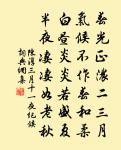 春光正濃二三月
氣候不作春和柔
白晝炎炎若盛夏
半夜凄凄如老秋
陳淳三月十一夜紀候
詞典網集